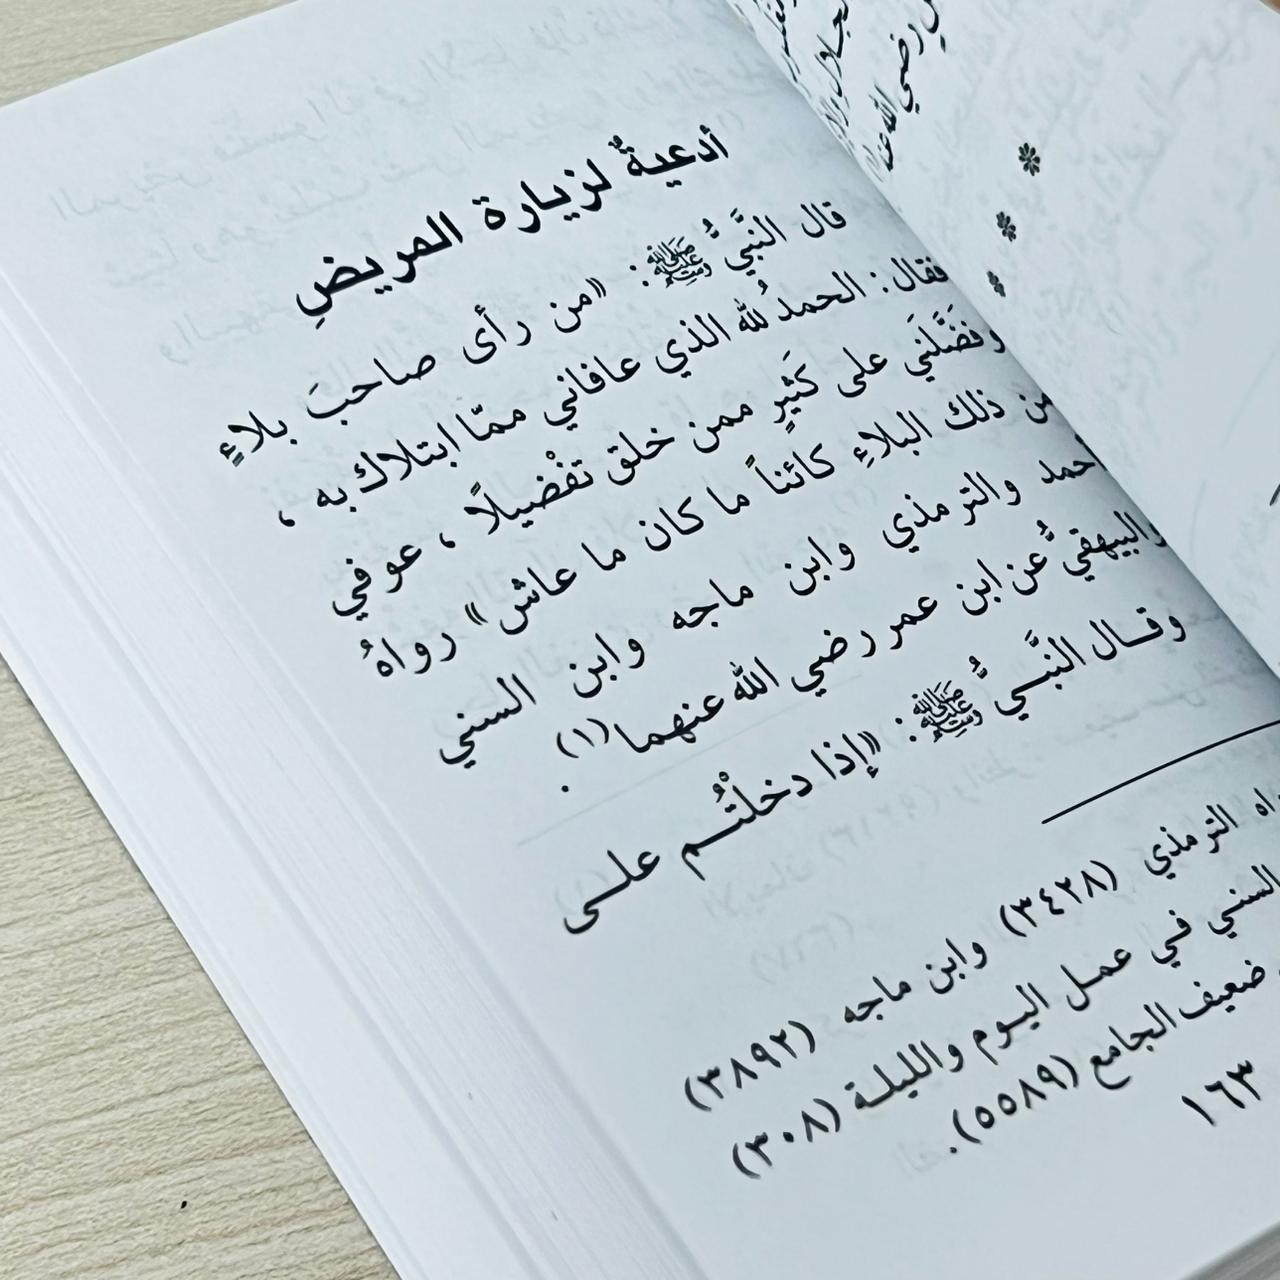 أدعيةٌ لزيارة المريضِ
قال النَّبيُّ ﷺ: «من رأى صاحبَ بلاءٍ
فقال: الحمدُ لله الذي عافاني ممّا ابتلاك به ،
وفضَّلَني على كَثيرٍ ممن خلق تفْضيلاً ، عوفي
من ذلك البلاءِ كائناً ما كان ما عاش» رواهُ
أحمد والترمذي وابن ماجه وابن السني
والبيهقيُّ عن ابن عمر رضي الله عنهما(١) .
وقـال النَّبـيُّ ﷺ: «إذا دخلْتُـم علـى
الترمذي (٣٤٢٨) وابن ماجه (٣٨٩٢)
السني في عمل اليوم والليلة (٣٠٨)
ضعيف الجامع (٥٥٨٩).
١٦٣
رضي الله عنه